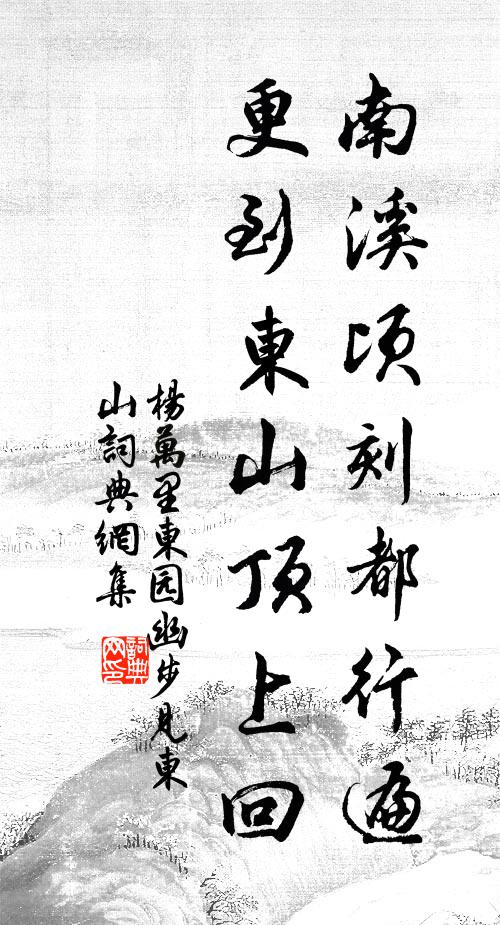 南溪頃刻都行遍
更到東山頂上回
楊萬里東园幽步見東
山詞典網集
詞典网印